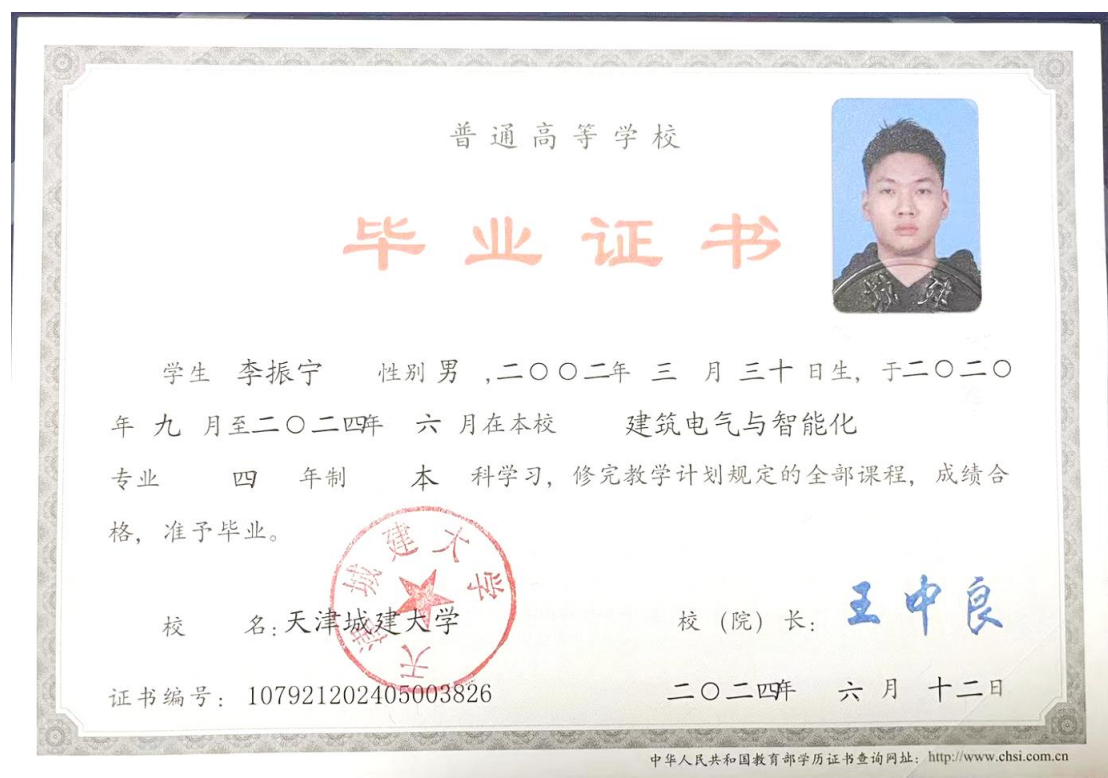 普通高等学校
毕业证书
学生 李振宁 性别 男 ,二〇〇二年 三 月 三十 日生, 于二〇二〇
年 九 月至二〇二四年 六 月在本校 建筑电气与智能化
专业 四 年制 本 科学习, 修完教学计划规定的全部课程, 成绩合
格, 准予毕业。
天津城建大学
校 名:天津城建大学 校（院）长: 王中良
证书编号: 107921202405003826 二〇二四年 六 月 十二日
中华人民共和国教育部学历证书查询网址: http://www.chsi.com.cn